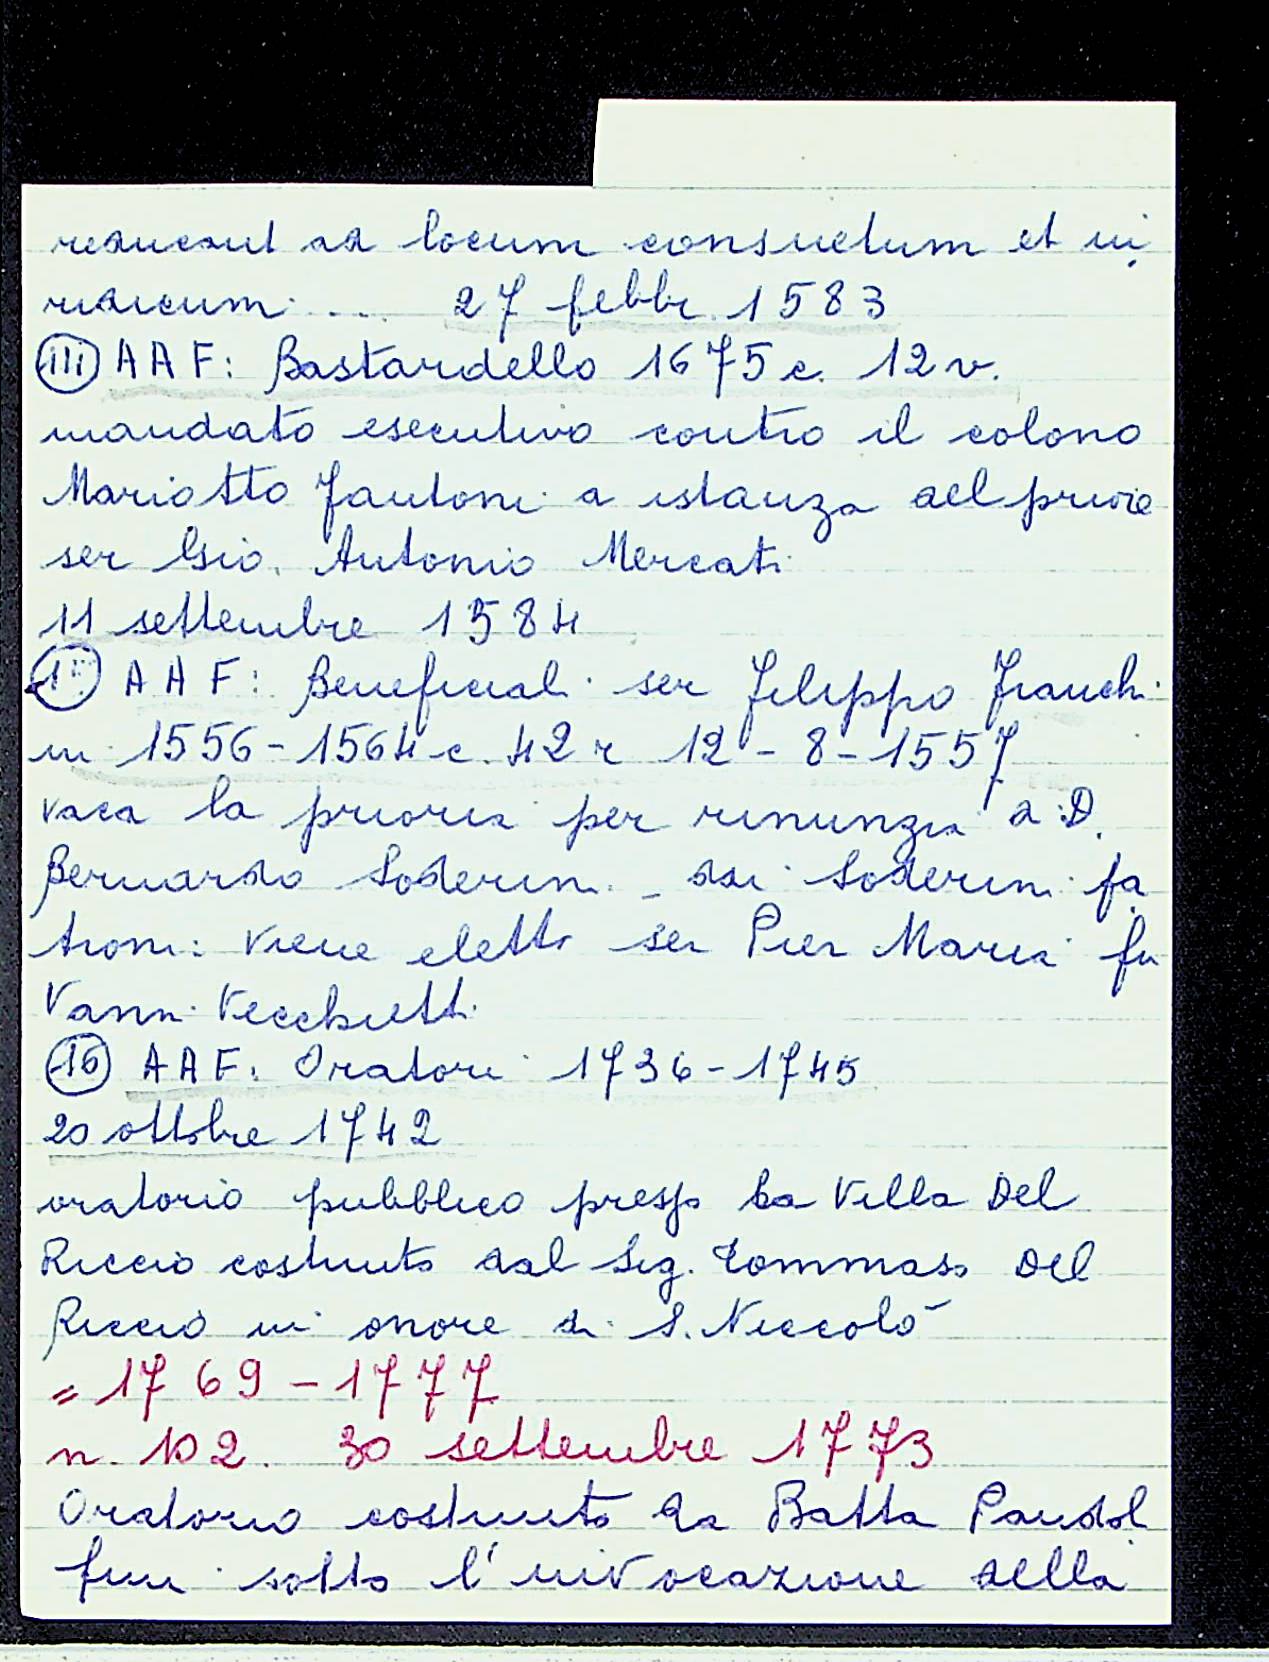 reducant ad locum consuetum et in
ridicum .... 27 febbr. 1583
(III) AAF: Bastardello 1675 c. 12 v.
mandato esecutivo contro il colono
Mariotto Fantoni a istanza del priore
ser Gio. Antonio Mercati
11 settembre 1584
AAF: Beneficiali ser Filippo Franchi
ni 1556-1564 c. 42 r 12-8-1557
vaca la prioria per rinunzia a D.
Bernardo Soderini - dai Soderini pa
troni: viene eletto ser Pier Maria fu
Vanni Vecchietti
(16) AAF: Oratori 1736-1745
20 ottobre 1742
oratorio pubblico presso la Villa Del
Riccio costruito dal Sig. Tommaso Del
Riccio in onore di S. Niccolò
= 1769-1777
n. 102. 30 settembre 1773
Oratorio costruito da Batta Pandol
fini sotto l'invocazione della